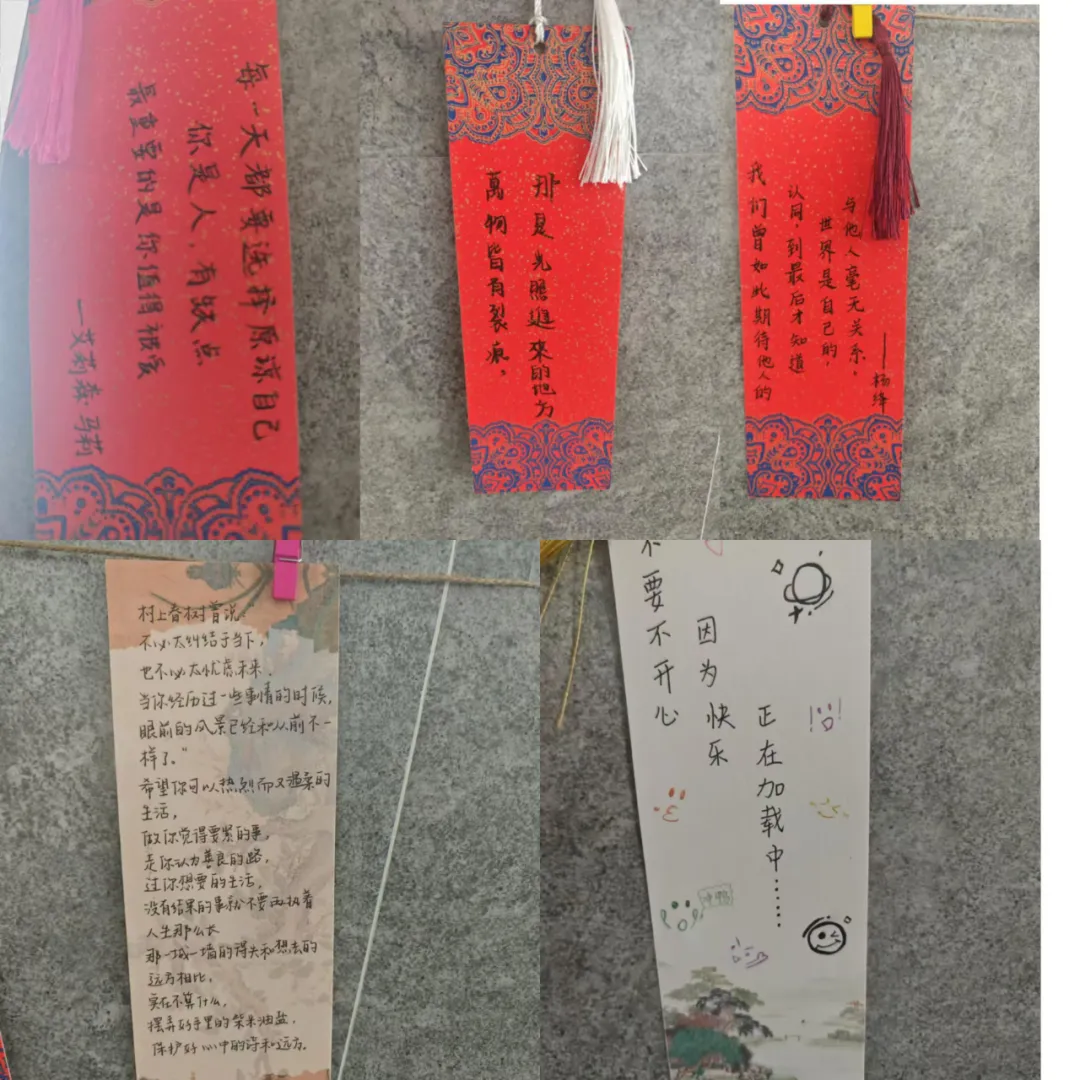 每一天都要选择原谅自己
你是人，有缺点
最重要的是你值得被爱
—艾莉森·马莉
那是光照進來的地方
萬物皆有裂痕。
我们曾如此期待他人的
认同，到最后才知道
世界是自己的，
与他人毫无关系。
——杨绛
村上春树曾说：
不必太纠结于当下，
也不必太忧虑未来，
当你经历过一些事情的时候，
眼前的风景已经和从前不一
样了。”
希望你可以热烈而又温柔的
生活，
做你觉得要紧的事，
走你认为善良的路，
过你想要的生活，
没有结果的事就不要再执着
人生那么长
那一城一墙的得失和想去的
远方相比，
实在不算什么，
摆弄好手里的柴米油盐，
保护好心中的诗和远方。
不要不开心
因为快乐
正在加载中……
冲鸭